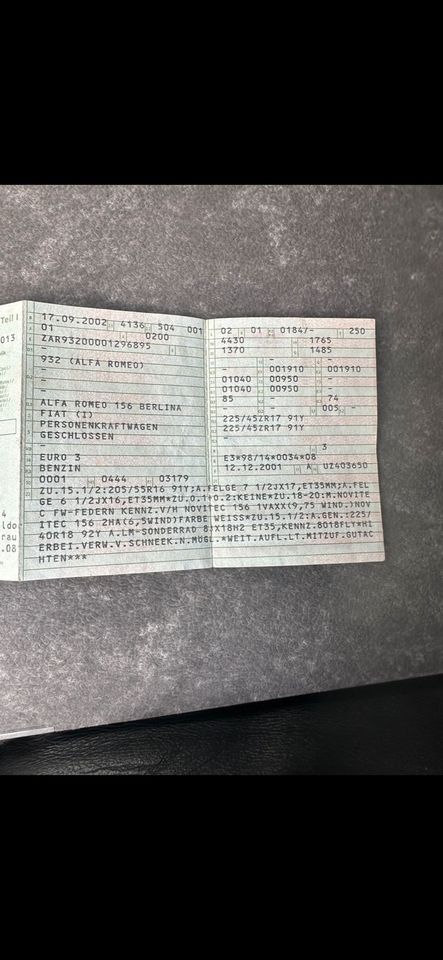 Teil I
013
4
ldo
rau
.08
17.09.2002 4136 504 001
01 0200
ZAR93200001296895
-
932 (ALFA ROMEO)
-
-
ALFA ROMEO 156 BERLINA
FIAT (I)
PERSONENKRAFTWAGEN
GESCHLOSSEN
EURO 3
BENZIN
0001 0444 03179
02 01 0184/- 250
4430 1765
1370 1485
- -
- 001910 001910
01040 00950 -
01040 00950 -
85 - 74
- 005 -
225/45ZR17 91Y
225/45ZR17 91Y
-
3
E3*98/14*0034*08
12.12.2001 A UZ403650
ZU.15.1/2:205/55R16 91Y;A.FELGE 7 1/2JX17,ET35MM;A.FEL
GE 6 1/2JX16,ET35MM*ZU.0.1+0.2:KEINE*ZU.18-20:M.NOVITE
C FW-FEDERN KENNZ.V/H NOVITEC 156 1VAXX(9,75 WIND.)NOV
ITEC 156 2HA(6,5WIND)FARBE WEISS*ZU.15.1/2:A.GEN.:225/
40R18 92Y A.LM-SONDERRAD 8JX18H2 ET35,KENNZ.8018FLY*HI
ERBEI.VERW.V.SCHNEEK.N.MÖGL.*WEIT.AUFL.LT.MITZUF.GUTAC
HTEN***